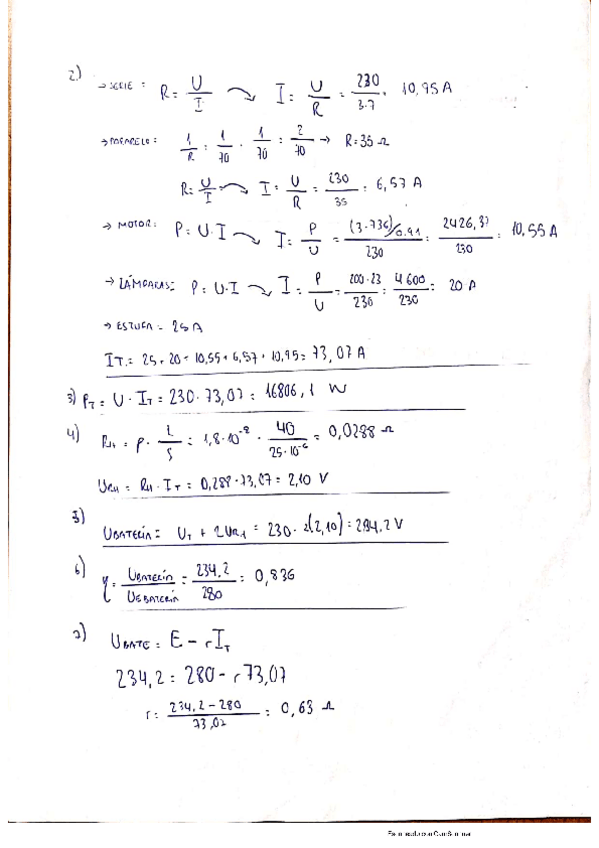 2) → SERIE : R = U/I ⤵ I = U/R = 230/3·7 = 10,95 A
→ PARARELO : 1/R = 1/70 · 1/70 = 2/70 → R = 35 Ω
R = U/I → I = U/R = 230/35 = 6,57 A
→ MOTOR: P = U·I ⤵ I = P/U = (3·736)/0.91/230 = 2426,37/230 = 10,55 A
→ LÁMPARAS: P = U·I ⤵ I = P/U = 200·23/230 = 4600/230 = 20 A
→ ESTUFA = 25 A
IT = 25 + 20 + 10,55 + 6,57 + 10,95 = 73,07 A
3) PT = U · IT = 230 · 73,07 = 16806,1 W
4) RH = ρ · L/S = 1,8·10⁻⁸ · 40/25·10⁻⁶ = 0,0288 Ω
URH = RH · IT = 0,288·73,07 = 2,10 V
5) UBATERÍA = UT + 2UR1 = 230 · 2(2,10) = 234,2 V
6) η = UBATERÍA/UEBATERÍA = 234,2/280 = 0,836
7) UBATE = E - rIT
234,2 = 280 - r73,07
r = 234,2 - 280/73,07 = 0,63 Ω
Escaneado con CamScanner